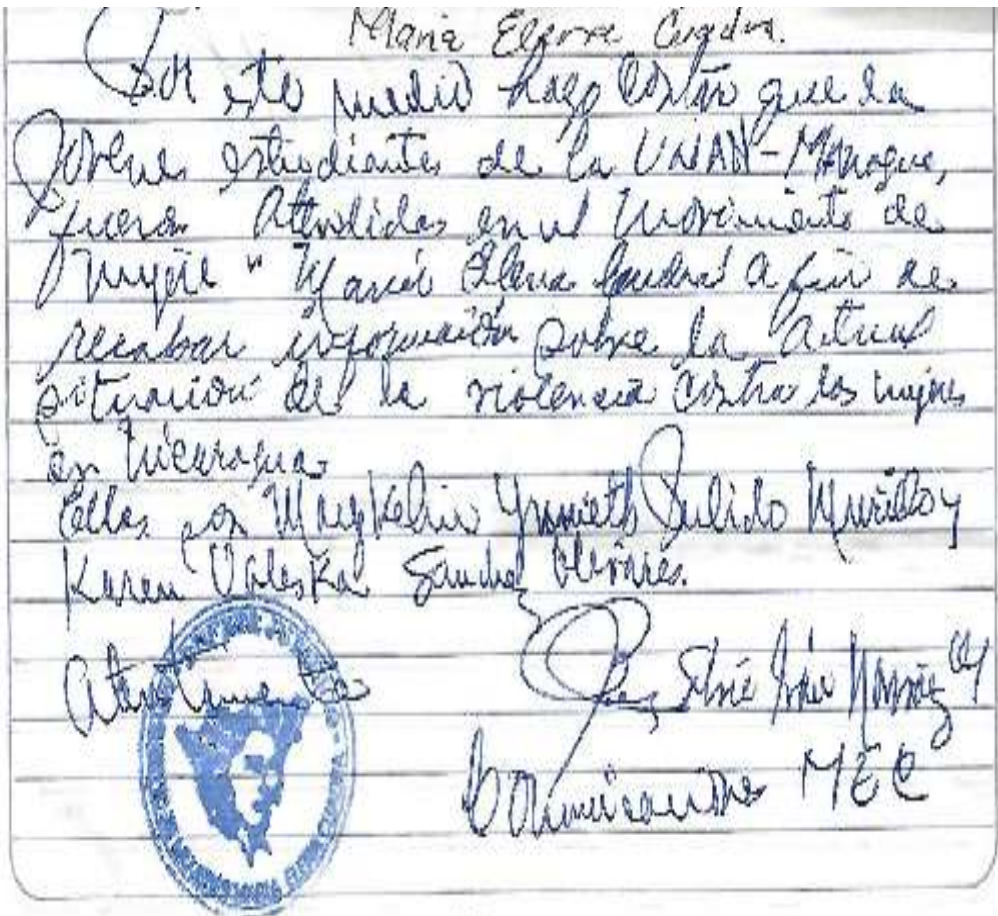 Maria Elena
Por este medio hago constar que la
Jovenes estudiantes de la UNAN-Managua,
fueron Atendidas en el Movimiento de
Mujere "María Elena a fin de
recabar información sobre la actual
situación de la violencia contra las mujeres
en Nicaragua
Ellas son Yunieth Pulido Murillo y
Karen Valeska Olivares.
Atentamente
MEC